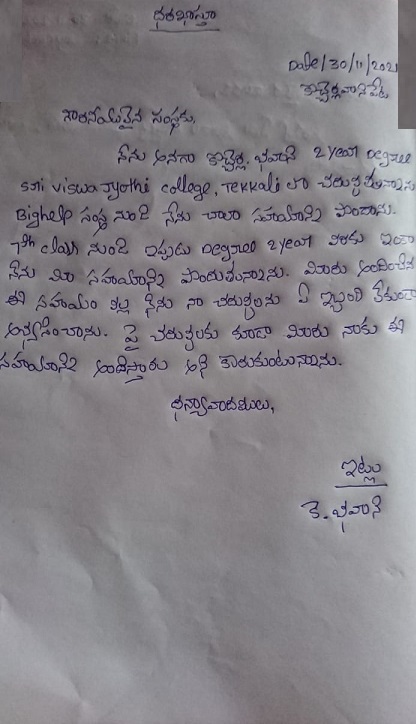 ధరఖాస్తూ
Date/30/11/2021
కొచ్చెర్లవానిపేట,
గౌరనీయులైన సంస్థకు,
నేను అనగా కొచ్చెర్ల. భవాని 2 year Degree
sri viswa Jyothi college, Tekkali లో చదువుతున్నాను
Bighelp సంస్థ నుండి నేను చాలా సహాయాన్ని పొందాను.
7th class నుండి ఇప్పుడు Degree 2 year వరకు ఇంకా
నేను మీ సహాయాన్ని పొందుతున్నాను. మీరు అందించిన
ఈ సహాయం వల్ల నేను నా చదువును ఏ ఇబ్బంది లేకుండా
అభ్యసించాను. పై చదువులకు కూడా మీరు నాకు ఈ
సహాయాన్ని అందిస్తారు అని కోరుకుంటున్నాను.
ధన్యావాదములు,
ఇట్లు
కె. భవాని